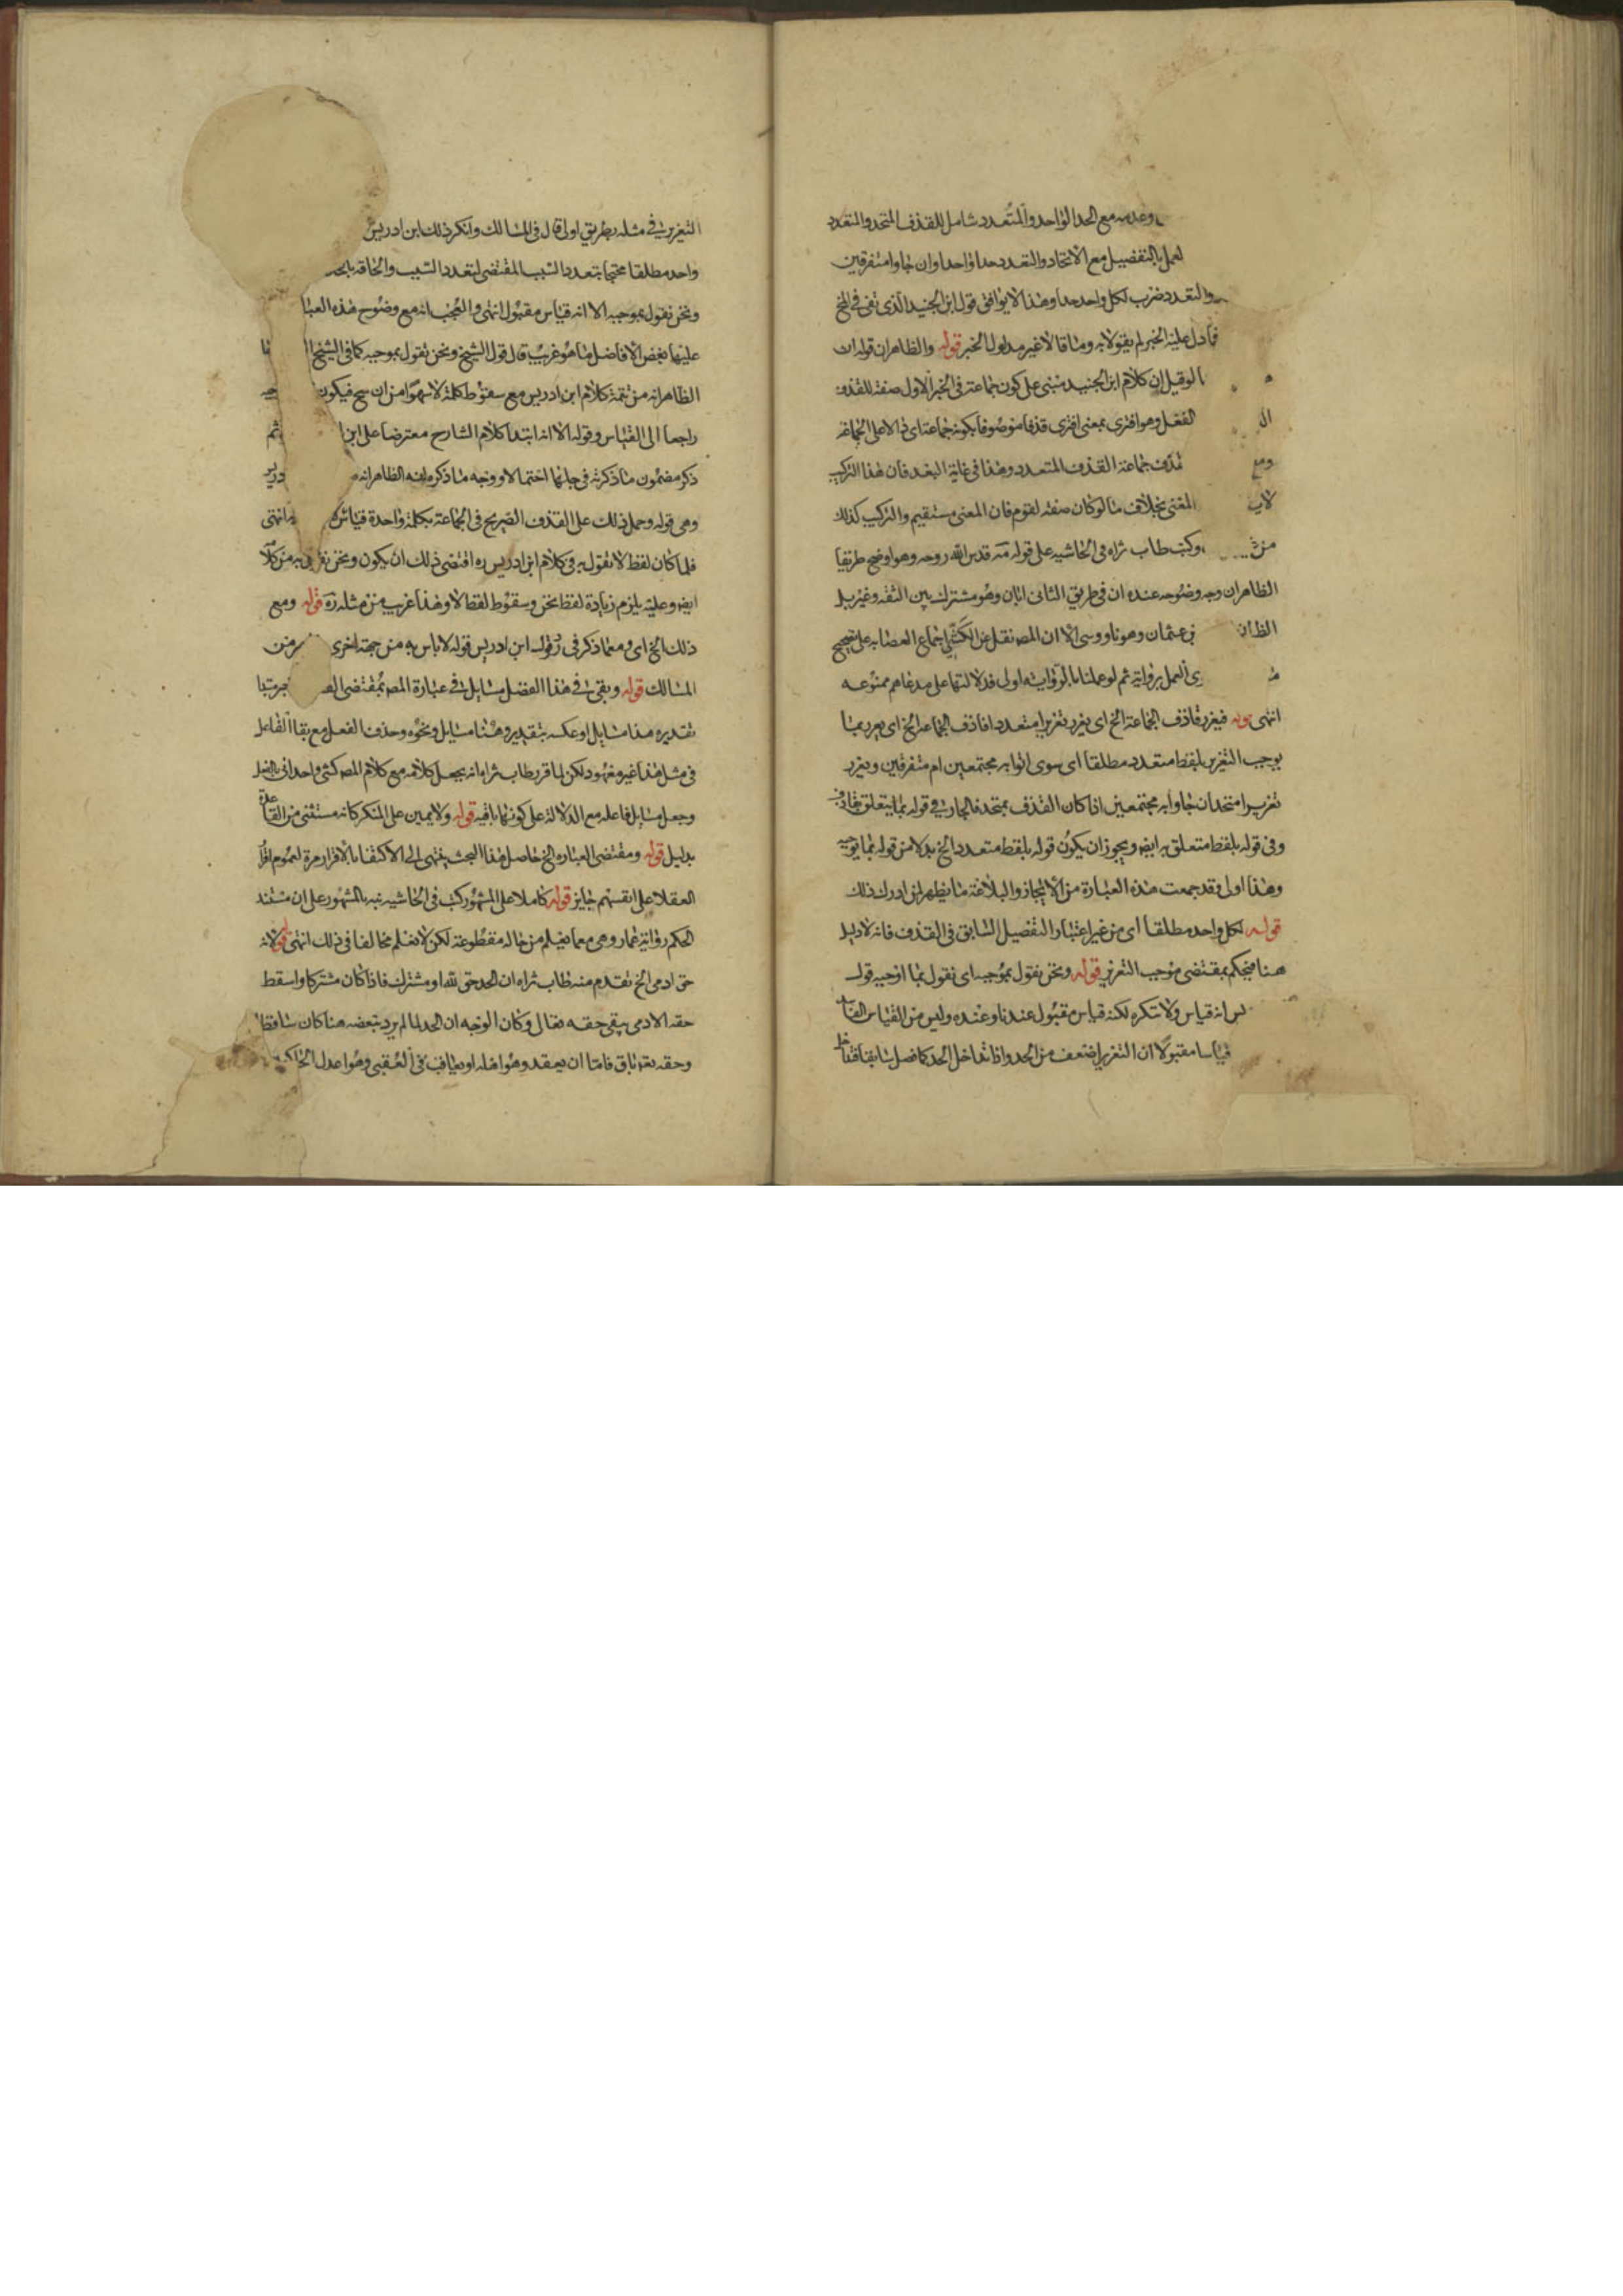 وعدمه مع الحد الواحد والمتعدد شامل للقذف المتحد والمتعدد
لعمل بالتفصيل مع الاتحاد والتعدد حدا واحدا وان جاوا متفرقين
والتعدد ضرب لكل واحد حدا وهذا لا يوافق قول ابن الجنيد الذي نفى في المخ
فما دل عليه الخبر لم يقولا به وما قالا غير مدلول الخبر قوله والظاهران قوله ان
الوقيل ان كلام ابن الجنيد مبنى على كون جماعة في الخبر الاول صفة للقذف
ال الفعل وهو افترى بمعنى افترى قذفا موصوفا بكونه جماعة اى لا على الجماعة
ومع قذف جماعة القذف المتعدد وهذا في غاية البعد فان هذا التركيب
لاي المعنى بخلاف ما لو كان صفة لقوم فان المعنى مستقيم والتركيب كذلك
من وكتب طاب ثراه في الحاشيه على قوله قدس الله روحه وهو اوضح طريقا
الظاهران وجه وضوحه عنده ان في طريق الثانى ابان وهو مشترك بين الثقه وغيره بل
الظ ان بن عثمان وهو ناووسى الا ان المص نقل عن الكشى اجماع العصابه على تصحيح
العمل بروايته ثم لو عملنا بالروايه اولى فدلالتها على مدعاهم ممنوعه
انتهى قوله فيعزر قاذف الجماعة الخ اى يعزر تعزيرا متعددا قاذف الجماعة الخ اى يعزر بما
يوجب التعزير بلفظ متعدد مطلقا اى سوى اتوا به مجتمعين ام متفرقين ويعزر
تعزيرا متحدا ان جاوا به مجتمعين اذا كان القذف بمتحد فالجار في قوله بما يتعلق بقاذف
وفى قوله بلفظ متعلق به ايضا ويجوز ان يكون قوله بلفظ متعدد الخ بدلا من قوله بما يوجبه
وهذا اولى فقد جمعت هذه العبارة من الايجاز والبلاغة ما يظهر لمن ادرك ذلك
قوله لكل واحد مطلقا اى من غير اعتبار التفصيل السابق في القذف فانه لا دليل
هنا فيحكم بمقتضى موجب التعزير قوله ونحن نقول بموجبه اى نقول بما اوجبه قولـ
انه قياس ولا تنكره لكنه قياس مقبول عندنا وعنده وليس من القياس
قياسا مقبولا ان التعزير اضعف من الحد واذا تداخل الحد كما فصل سابقا
التعزير في مثله بطريق اولى قال في المسالك وانكر ذلك ابن ادريس
واحد مطلقا محتجا بتعدد السبب المقتضى لتعدد المسبب والحاقه بالحد
ونحن نقول بموجبه الا انه قياس مقبول انتهى والعجب انه مع وضوح هذه العبا
عليها بعض الافاضل ما هو غريب قال قول الشيخ ونحن نقول بموجبه كما في الشيخ
الظاهر انه من تتمة كلام ابن ادريس مع سقوط كلمة لا سهوا من ان سخ فيكون
راجعا الى القياس وقوله الا انه ابتدا كلام الشارح معترضا على ابن ثم
ذكر مضمون ما ذكرته في جملتها احتمالا ووجه ما ذكره انه الظاهر انه
وهى قوله وحمل ذلك على القذف الصريح في الجماعة بكلمة واحدة قياس انتهى
فلما كان لفظ لا نقول به في كلام ابن ادريس ره اقتضى ذلك ان يكون ونحن به من كلا
ايضا وعليه يلزم زيادة لفظ نحن وسقوط لفظ لا وهذا غريب من مثله ره قوله ومع
ذلك الخ اى ومع ما ذكر في رد قول ابن ادريس قوله لا باس به من جهة اخرى
المسالك قوله وبقى في هذا الفصل مسايل في عبارة المص بمقتضى
تقديره هذا مسايل او عكسه بتقدير وهنا مسايل ونحوه وحذف الفعل مع بقا الفاعل
في مثل هذا غير معهود لكن لما قرر طاب ثراه انه يجعل كلامه مع كلام المص كشى واحد
وجعل مسايل فاعله مع الدلالة على كونها باقيه قوله ولا يمين على المنكر كانه مستثنى من القاعدة
بدليل قوله ومقتضى العبارة الخ حاصل هذا البحث ينتهى الى الاكتفا بالاقرار مرة لعموم اقرار
العقلا على انفسهم جايز قوله كاملا على المشهور كتب في الحاشيه نبه بالمشهور على ان مستند
الحكم رواية عمار وهى مما يعلم من حاله مقطوعة لكن لا نعلم مخالفا في ذلك انتهى قوله لانه
حق ادمى الخ تقدم منه طاب ثراه ان الحد حق لله او مشترك فاذا كان مشتركا واسقط
حقه الادمى يبقى حقه تعالى وكان الوجه ان الحد لما لم يرد بعضه هنا كان ساقطا
وحقه تعالى باق فاما ان يعقد وهو اهله او يعاقب في العقبى وهو اعدل الحاكمين